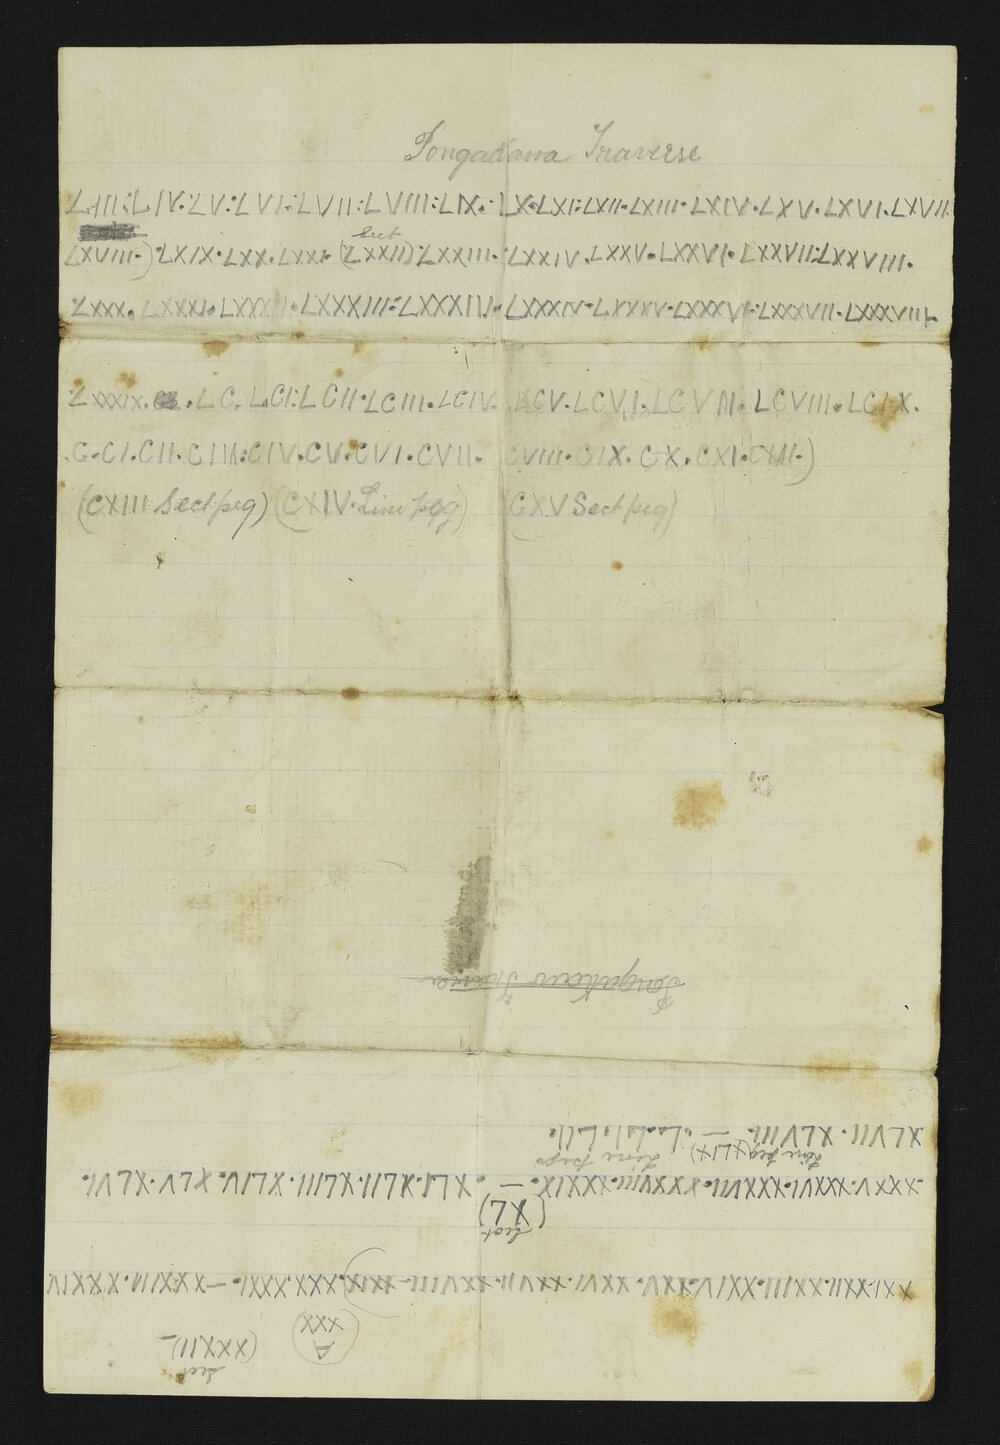 Pongakawa Traverse
LIII:LIV.LV:LVI:LVII:LVIII:LIX:LX.LXI:LXII.LXIII.LXIV.LXV.LXVI.LXVII
Sect
LXVIII.) LXIX.LXX.LXXI.(LXXII) LXXIII.LXXIV.LXXV.LXXVI.LXXVII:LXXVIII.
LXXX.LXXXI.LXXXII.LXXXIII:LXXXIII.LXXXIV.LXXXV.LXXXVI.LXXXVII.LXXXVIII.
LXXXIX. LC. LCI:LCII.LCIII.LCIV. LCV.LCVI.LCVII.LCVIII.LCIX.
C.CI.CII.CIII:CIV.CV.CVI.CVII. CVIII.CIX.CX.CXI.CXII.)
(CXIII Sect peg) (CXIV. Line peg) (CXV Sect peg)
Sect
(XXXII)-
A
XXX
XXI.XXII.XXIII.XXIV.XXV.XXVI.XXVII.XXVIII-XXIX).XXX.XXXI.-XXXIII.XXXIV
Sect
(XL)
.XXXV.XXXVI.XXXVII.XXXVIII.XXXIX. - . XLI.XLII.XLIII.XLIV.XLV.XLVI.
Line peg Line pegs
XLVII.XLVIII. (XLIX) - L.LI.LII.
Pongakawa Traverse